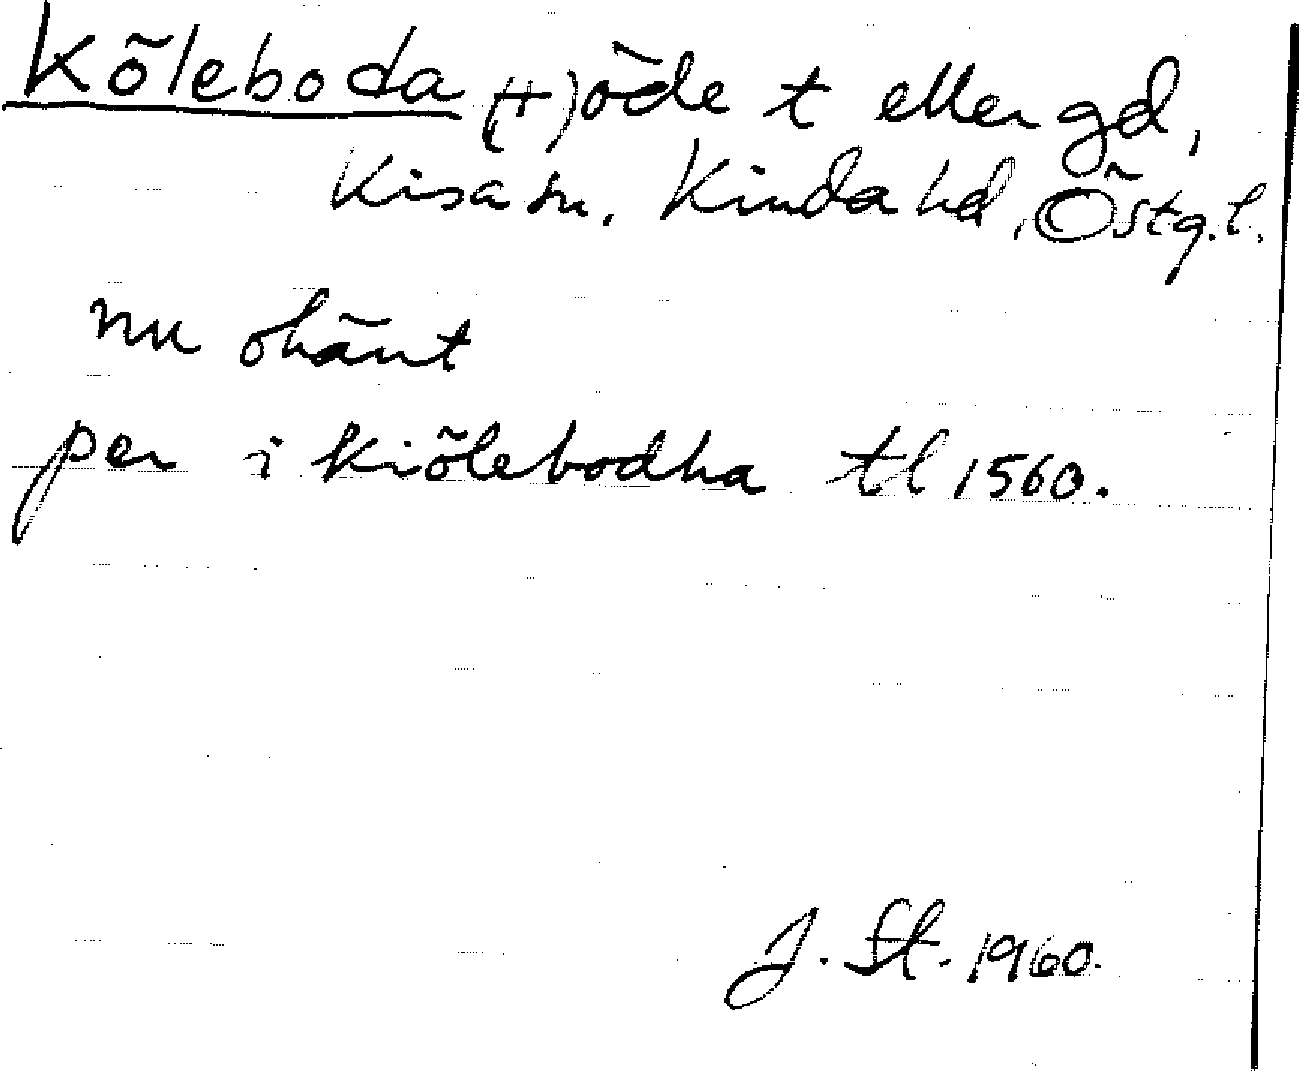 Köleboda (†) öde t eller gd,
Kisa sn, Kinda hd, Östg. l.
nu okänt
per i Kiölebodha tl 1560.
J. St. 1960.